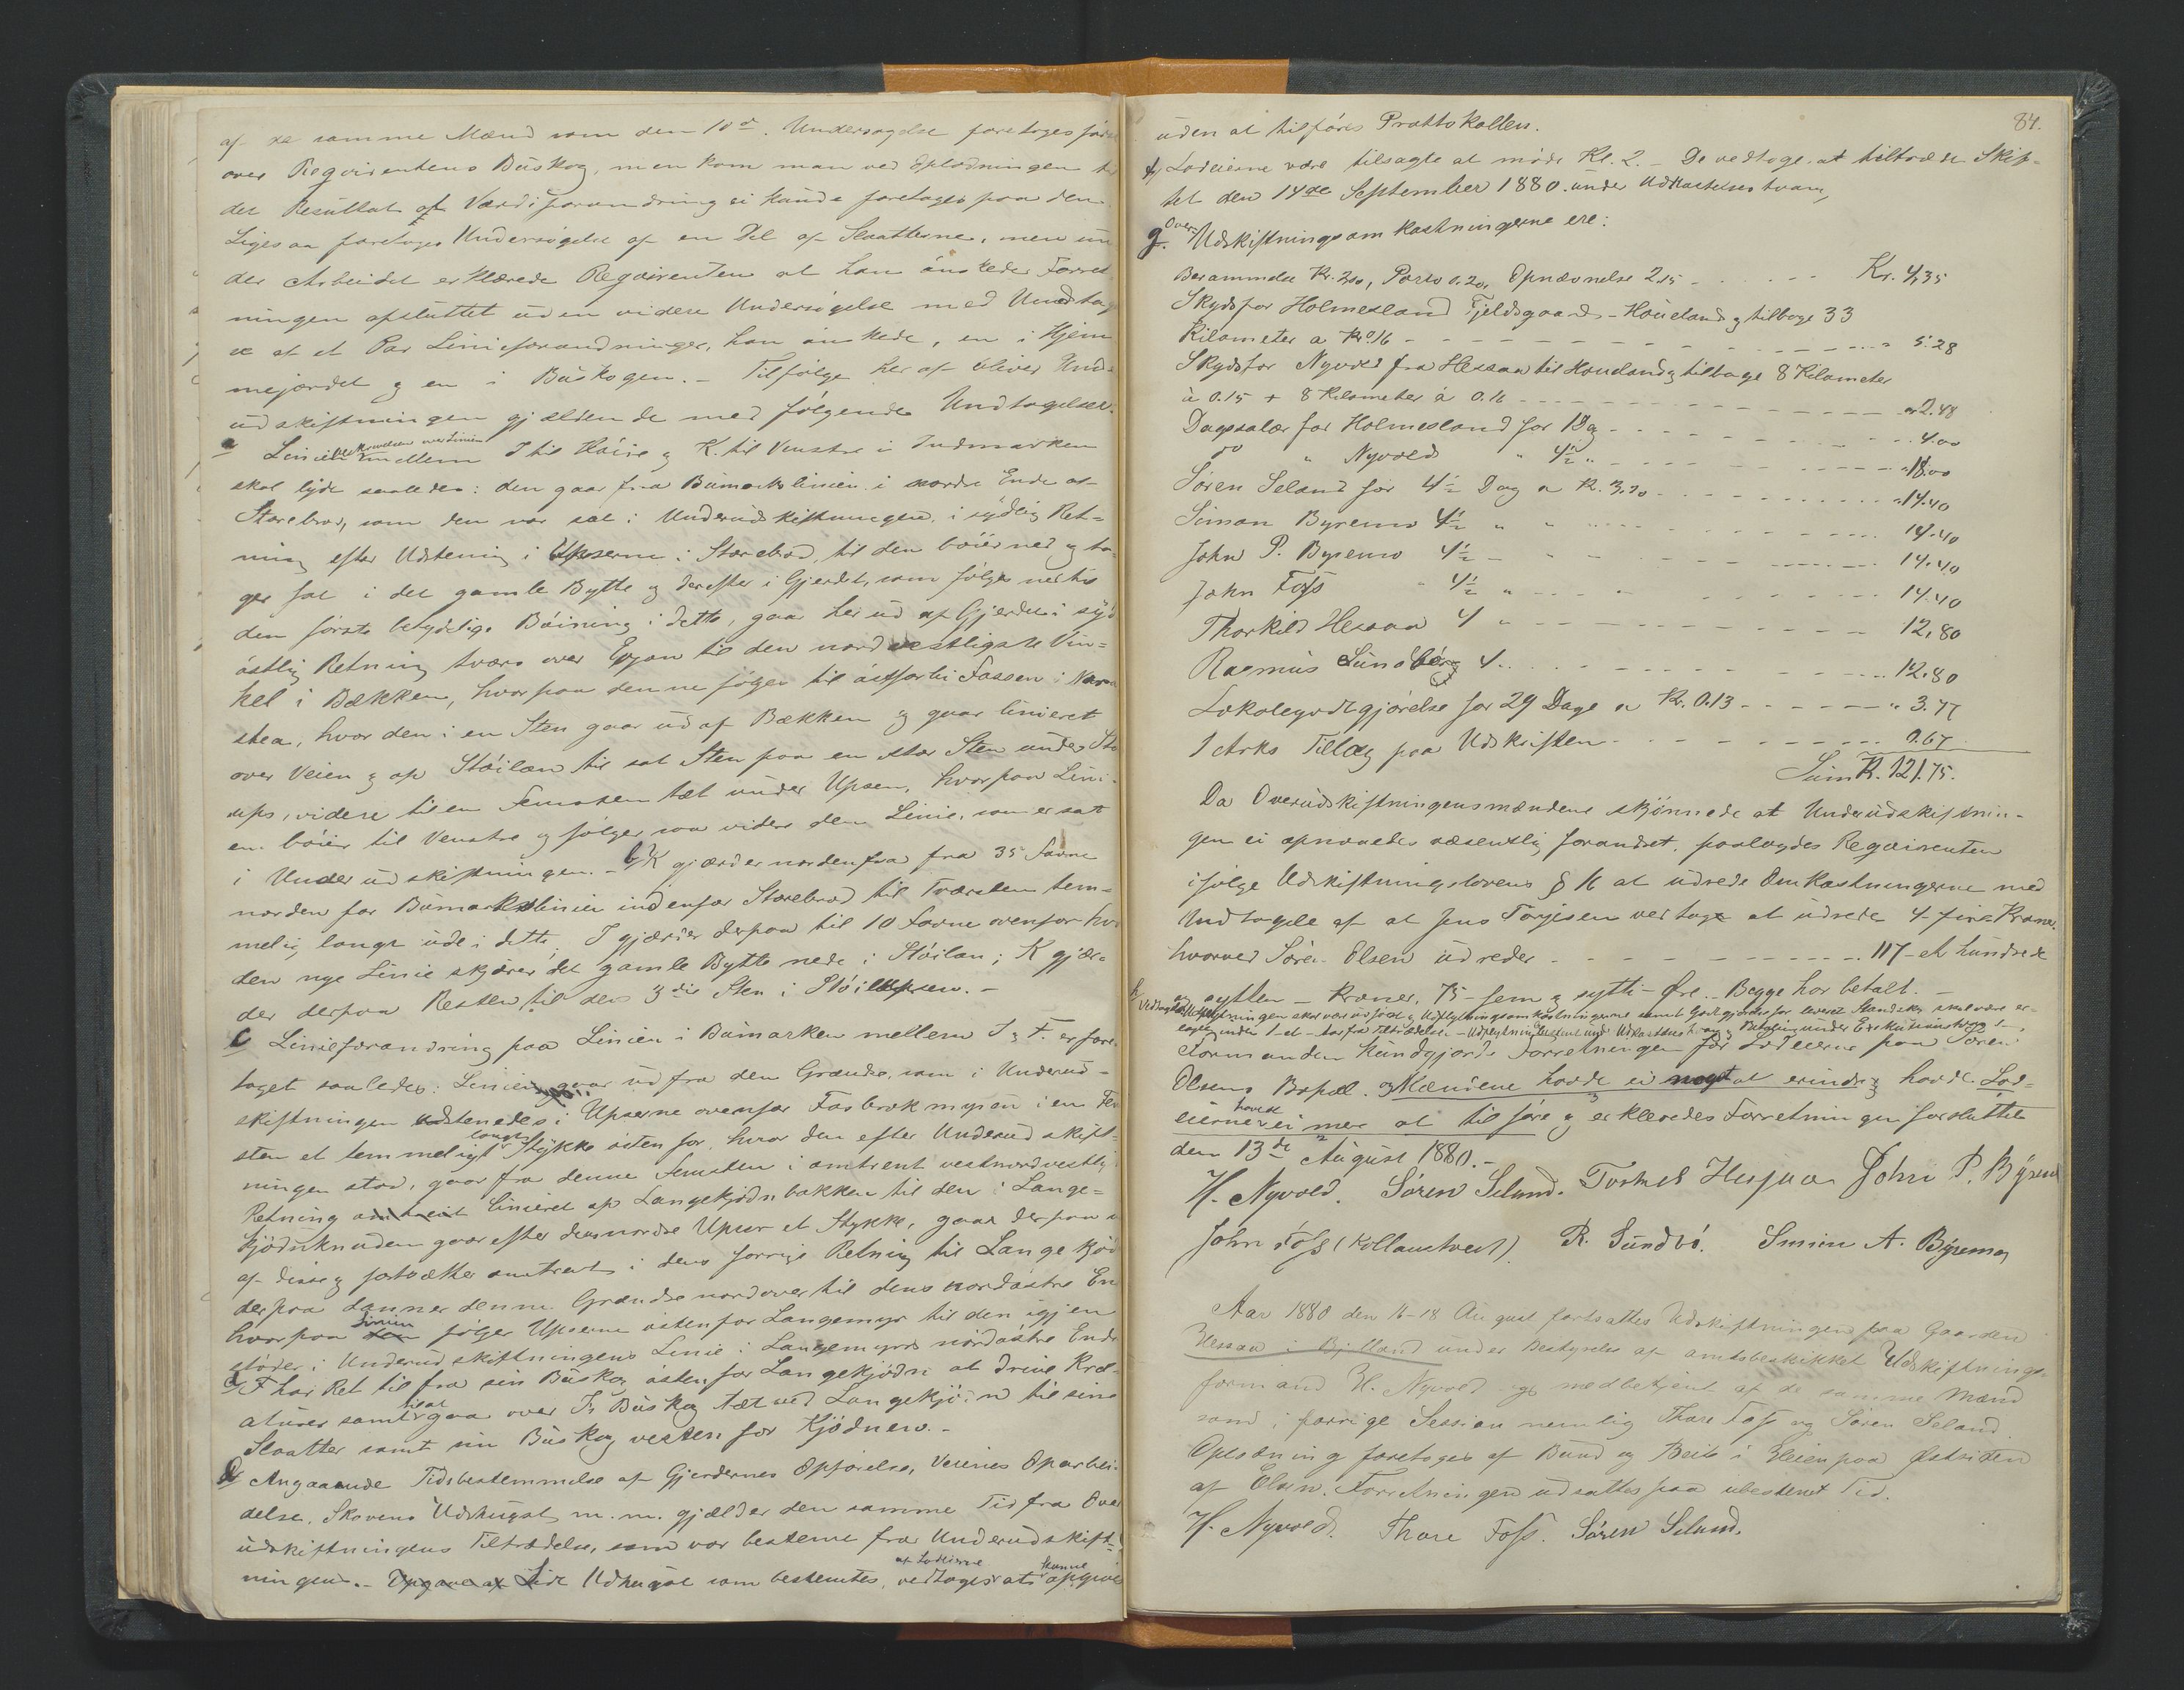 af de samme Mænd som den 10d. Undersøgelse foretoges først
over Reqvirentens Buskog, men kom man ved Oplodningen til
det Resultat at Værdiforandring ei kunde foretages paa den.
Ligesaa foretoges Undersøgelse af en Del af Slaatterne, men un
der Arbeidet erklærede Reqvirenten at han ønskede Forret
ningen afsluttet uden videre Undersøgelse med Undtag
else af et Par Linieforandringer, han ønskede, en i Hjem
mejordet og en i Buskogen. - Tilfølge heraf bliver Under
udskiftningen gjældende med følgende Undtagelser.
a Beskrivelsen over Linien
Linien mellem I til Høire og K. til Venstre i Indmarken
skal lyde saaledes: den gaar fra Bumarkslinien i nordre Ende af
Storebrod, som den var sat i Underudskiftningen, i sydlig Ret-
ning efter Udstening i Upserne i Storebrod, til den bøier ned og ta-
ger fat i det gamle Bytte og derefter i Gjerdet, som følges ned til
den første betydelige Bøining i dette, gaar her ud af Gjerdet i syd
østlig Retning tværs over Egjan til den nordvestligste Vin-
kel i Bækken, hvorpaa denne følges til østforbi Fossen i
stea, hvor den i en Sten gaar ud af Bækken og gaar linieret
over Veien og op Støilan til sat Sten paa en stor Sten under
ups, videre til en Femsten tæt under Upsen, hvorpaa Lini
en bøier til Venstre og følger saa videre den Linie, som er sat
i Underudskiftningen. - b) K gjærder nordenfra fra 35 Favne
norden for Bumarkslinien indenfor Storebrod til Tværsten tem-
melig langt ude i dette. I gjærder derpaa til 10 Favne ovenfor hvor
den nye Linie skjærer det gamle Bytte nede i Støilan; K gjær-
der derpaa Resten til den 3die Sten i Støilupsen. -
c Linieforandring paa Linien i Bumarken mellem I og F. er fore
taget saaledes: Linien gaar ud fra den Grændse, som i Underud-
skiftningen udstenedes i Upserne ovenfor Fosbrokmyren i en Fem
sten et temmeligt langt Stykke østenfor, hvor den efter Underudskift-
ningen stod, gaar fra denne Femsten i omtrent vestnordvestlig
Retning linieret op Langekjødnbakken til den i Lange-
kjødnknuden gaar efter dens nordre Upser et Stykke, gaar derpaa
af disse og fortsætter omtrent i dens forrige Retning til Langekjød
derpaa danner denne Grændse nordover til dens nordøstre En
hvorpaa Linien følger Upserne østenfor Langemyr til den igjen
støder i Underudskiftningens Linie i Langemyrs nordøstre Ende
d F har Ret til fra sin Buskog østenfor Langekjødn at drive Kre-
aturer samt til at gaa over I's Buskog tæt ved Langekjødn til sine
Slaatter samt sin Buskog vesten for Kjødnen. -
e Angaaende Tidsbestemmelse af Gjerdernes Opførelse, Veienes Oparbei-
delse, Skovens Udhugst m. m. gjælder den samme Tid fra Over
udskiftningens Tiltrædelse, som var bestemt fra Underudskift-
ningen. - Udhugst som bestemtes, vedtoges af Lodeierne at kunne opgives
84.
uden at tilføres Prottokollen.
f) Lodeierne vare tilsagte at møde Kl. 2. - De vedtoge at tiltræde Skif-
tet den 14de September 1880 under Udkastelsestvang,
g. Over Udskiftningsomkostningerne ere:
Berammelse Kr. 2,00, Porto 0.20, Opnævnelse 2.15 - - - Kr. 4,35
Skyds for Holmesland Fjeldsgaard - Houeland og tilbage 33
Kilometer a Kr 0.16 - - - 5.28
Skyds for Nyvold fra Hessaa til Houeland og tilbage 8 Kilometer
à 0.15 + 8 Kilometer à 0.16 - - - 2.48
Dagssalær for Holmesland for 1 Dag - - - 4.00
do " Nyvold " 4½ " - - - 18.00
Søren Seland for 4½ Dag a K. 3.20 - - - 14.40
Simon Byremo 4½ " - - - 14.40
John P. Byremo 4½ - - - 14.40
John Foss 4½ " - - - 14.40
Thorkild Hessaa 4 " - - - 12,80
Rasmus Sundbø 4 - - - 12.80
Lokalegodtgjørelse for 29 Dage a Kr. 0.13 - - - 3.77
1 Arks Tillæg paa Udskriften - - - 0.67
Sum K. 121.75.
Da Overudskiftningensmændene skjønnede at Underudskiftnin-
gen ei opnaaede væsentlig forandret, paalagdes Reqvirenten
ifølge Udskiftningslovens § 16 at udrede Omkostningerne med
Undtagelse af at Jens Torjesen vedtog at udrede 4 - fire Kroner
hvorved Søren Olsen udreder - - - 117 - et hundrede
og sytten - Kroner, 75 - fem og sytti - Øre. - Begge har betalt. -
h) Vedtoges Udflytningen skal være udført og Udflytningsomkostningerne samt Godtgjørelse for leveret Skandskog skal være er-
lagt inden 1 - et - Aar fra Tiltrædelsen. - Udflytning under Udkastelsestvang og Betaling under Exekutionstvang. -
Formanden kundgjorde Forretningen for Lodeierne paa Søren
Olsens Bopæl. og Mændene havde ei noget at erindre og havde Lod-
eierne havde ei mer at tilføre og erklæredes Forretningen forsluttet
den 13de August 1880. -
H. Nyvold. Søren Seland. Torkel Hesjaa John P. Byremo
John Foss (Kollandtved) R. Sundbø. Simon A. Byremo
Aar 1880 den 16-18 August fortsattes Udskiftningen paa Gaarden
Hessaa i Bjelland under Bestyrelse af amtsbeskikket Udskiftnings-
formand H. Nyvold og medbetjent af de samme Mænd
som i forrige Session nemlig Thore Foss og Søren Seland.
Oplodning foretoges af Bund og Beite i Heien paa Østsiden
af Elven. Forretningen udsattes paa ubestemt Tid.
H. Nyvold. Thore Foss. Søren Seland.